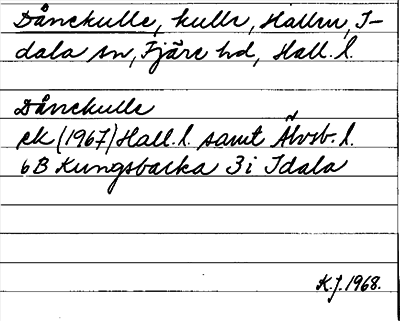 Dånekulle, kulle, Hallen, I-
dala sn, Fjäre hd, Hall. l.
Dånekulle
ek (1967) Hall. l. samt Älvsb. l.
6B Kungsbacka 3i Idala
K.J. 1968.